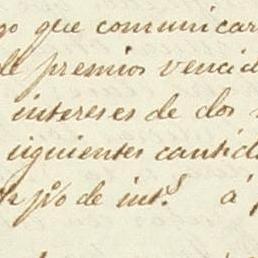 go que comunicar
de premios vencid
intereses de dos
siguientes cantid
p% de int.s á